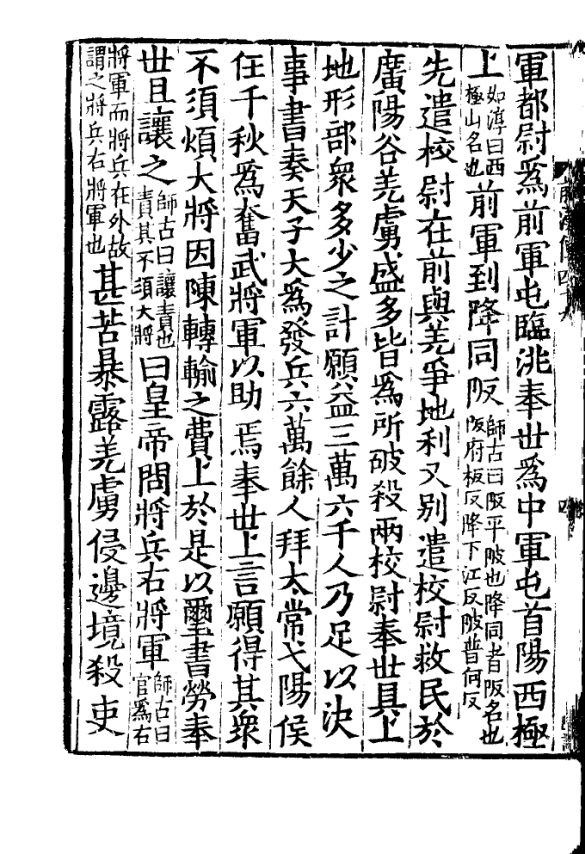 軍都尉爲前軍屯臨洮奉世爲中軍屯首陽西極
上如淳曰西極山名也前軍到降同阪師古曰阪平陂也降同者阪名也阪府板反降下江反陂普何反
先遣校尉在前與羌爭地利又别遣校尉救民於
廣陽谷羌虜盛多皆爲所破殺兩校尉奉世具上
地形部衆多少之計願益三萬六千人乃足以決
事書奏天子大爲發兵六萬餘人拜太常弋陽侯
任千秋爲奮武將軍以助焉奉世上言願得其衆
不須煩大將因陳轉輸之費上於是以璽書勞奉
世且讓之師古曰讓責也責其不須大將曰皇帝問將兵右將軍師古曰官爲右
將軍而將兵在外故謂之將兵右將軍也甚苦暴露羌虜侵邊境殺吏